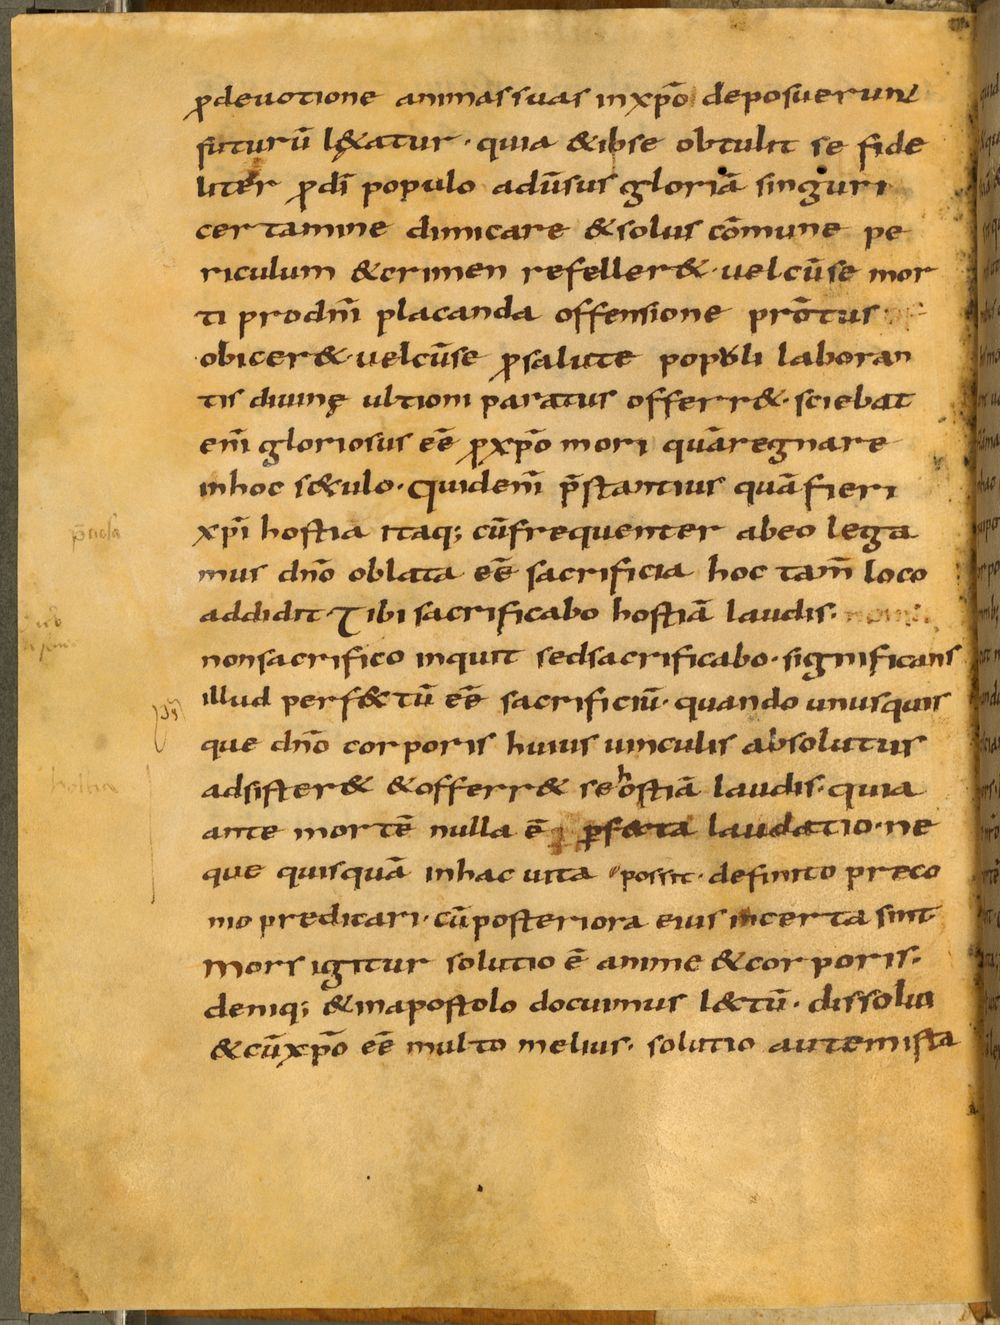 ꝓdeuotione animas suas in xp̄o deposuerunt
futurū lętatur · quia & ibse obtulit se fide
liter ꝓ dī populo adūsus gloriā singuri
certamine dimicare & solus cōmune pe
riculum & crimen refeller& · uel cū se mor
ti pro dn̄i placanda offensione prōtus
obicer& · uel cū se ꝓ salute populi laboran
tis diuinę ultioni paratus offerr& · sciebat
em̄ gloriosus eē ꝓ xp̄o mori quā regnare
in hoc s&ulo · Quid em̄ p̄stantius quā fieri
xp̄i hostia itaq; cū frequenter ab eo lega
mus dn̄o oblata eē sacrificia hoc tam̄ loco
addidit · Tibi sacrificabo hostiā laudis ·
non sacrifico inquit sed sacrificabo · significans
illud perf&tū eē sacrificiū · quando unusquis
que dn̄o corporis huius uinculis absolutus
adsister& & offerr& se hostiā laudis · quia
ante mortē nulla ē perf&ta laudatio · ne
que quisquā in hac uita possit · definito preco
nio predicari · cū posteriora eius incerta sint
Mors igitur solutio ē anime & corporis ·
deniq; & in apostolo docuimus l&tū · dissolui
& cū xp̄o eē multo melius · solutio autem ista